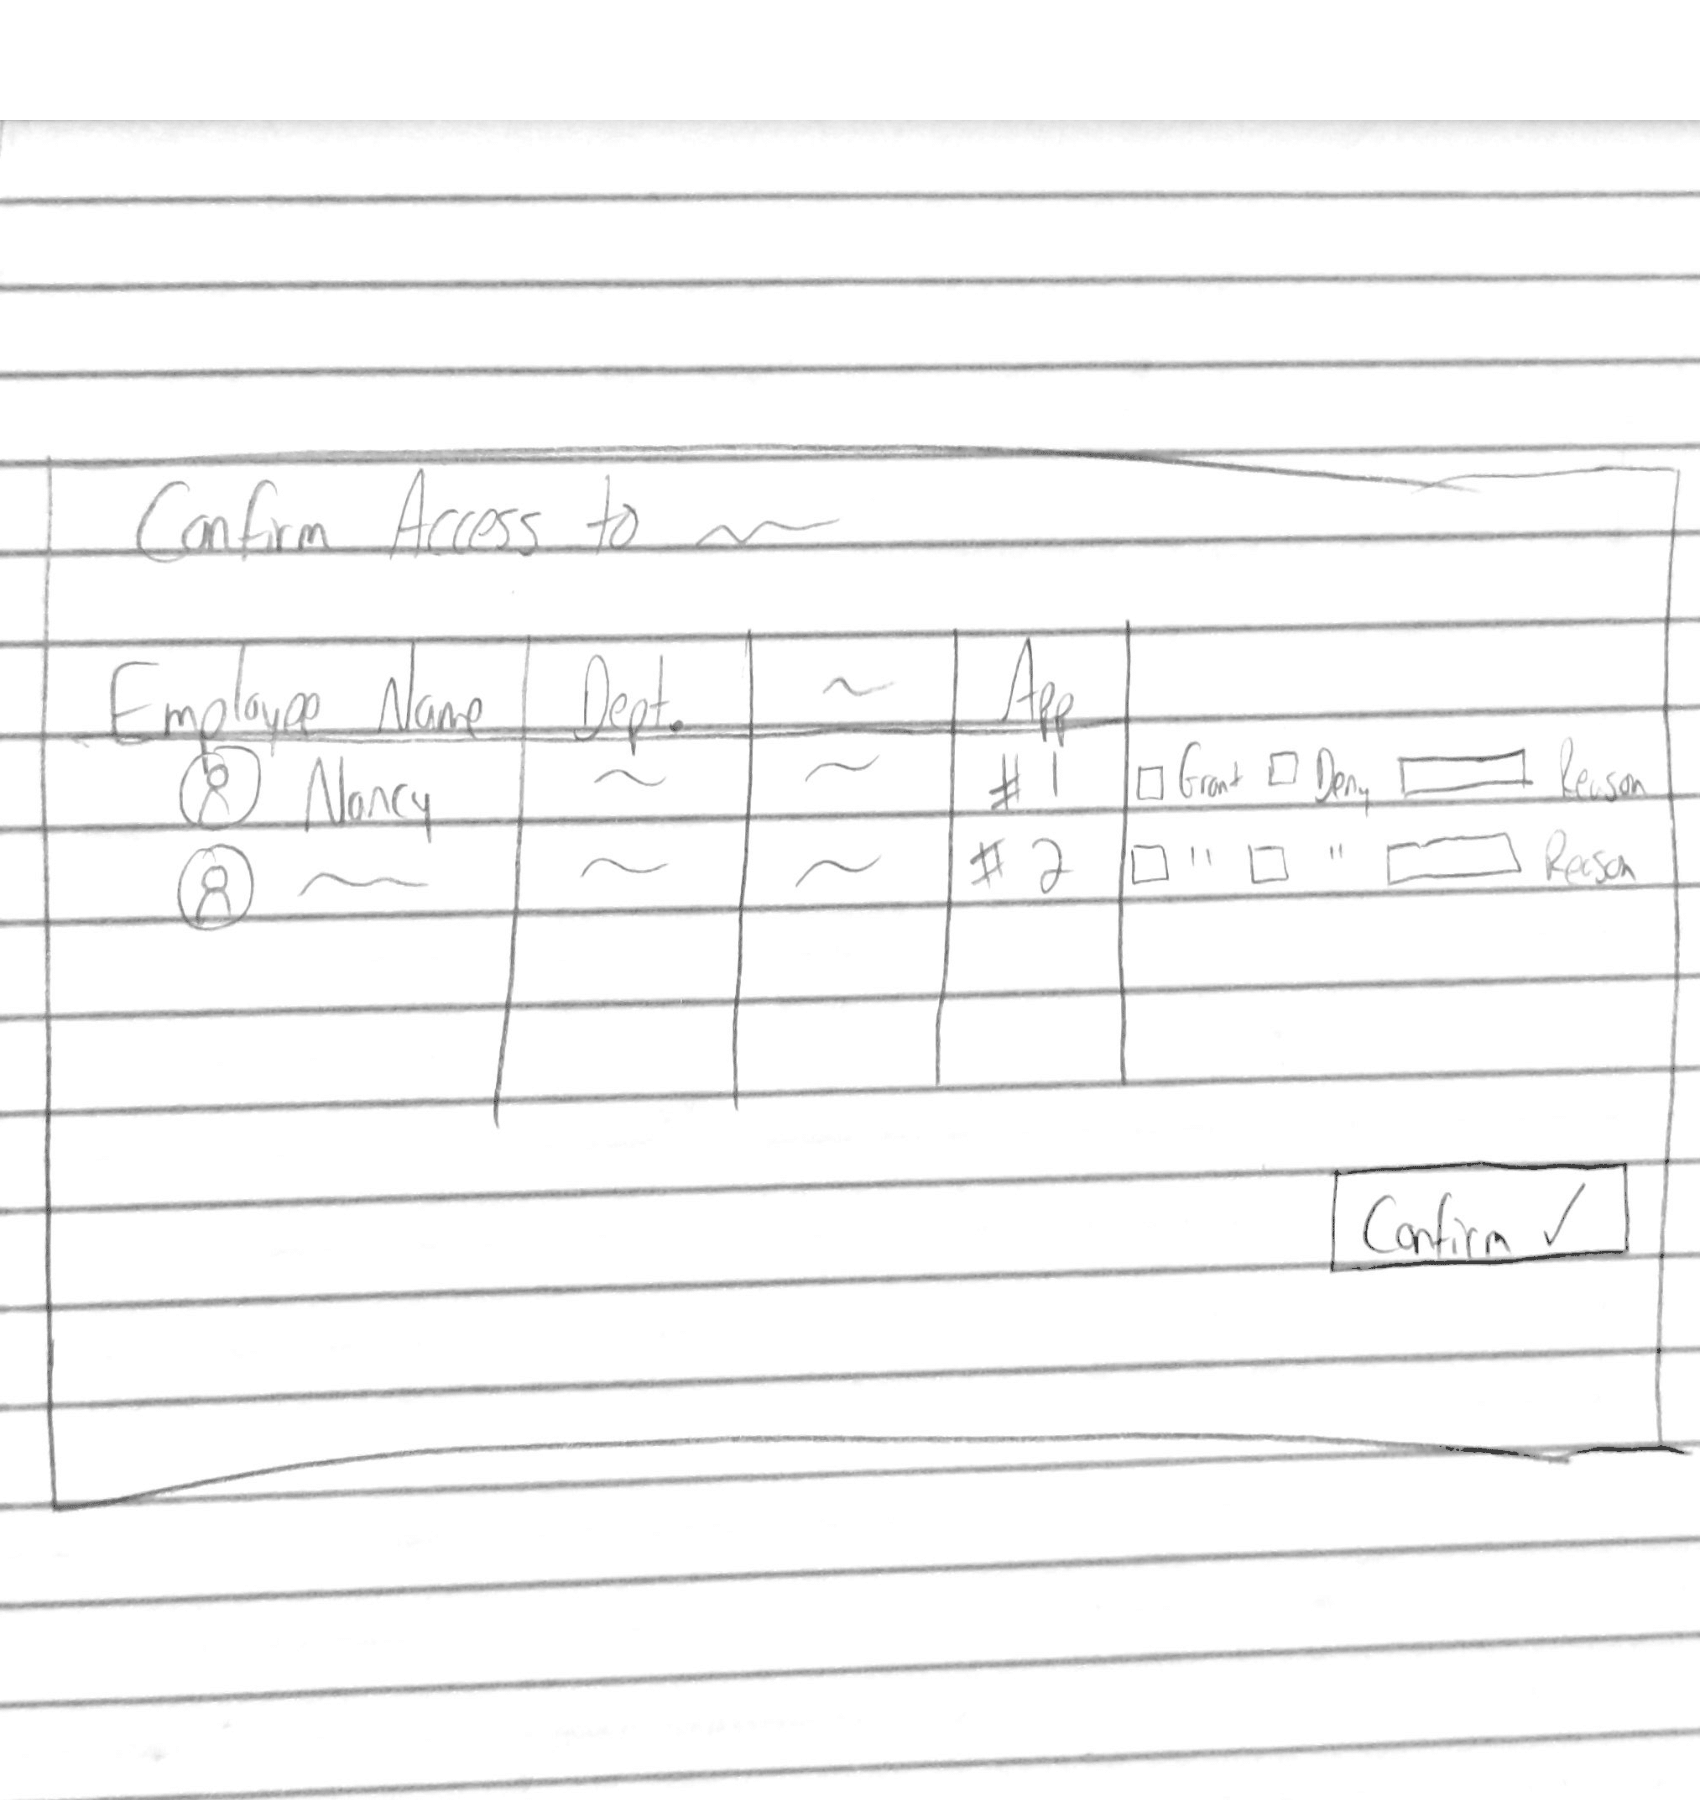 Confirm Access to
Employee Name Dept. App
Nancy #1 Grant Deny Reason
#2 " " Reason
Confirm ✓